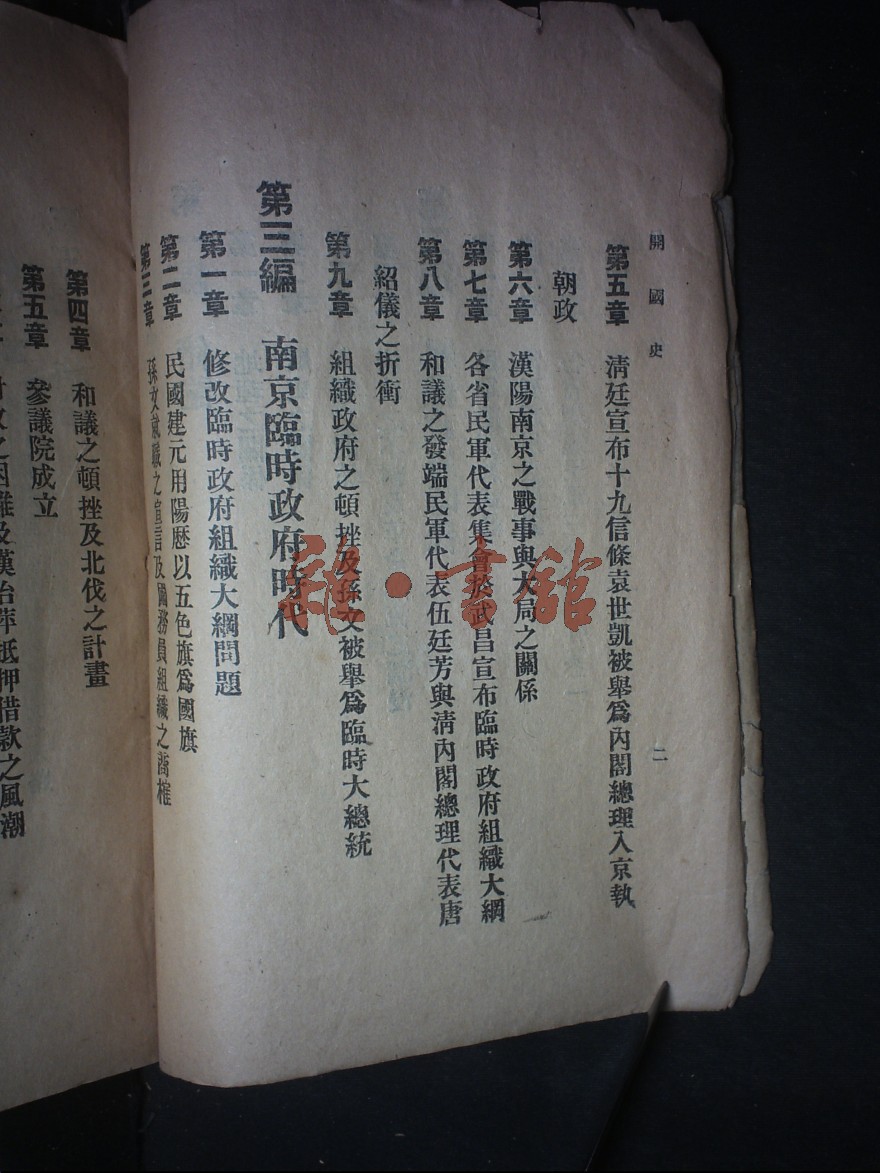 開國史
二
第五章　清廷宣布十九信條袁世凱被舉爲內閣總理入京執
朝政
第六章　漢陽南京之戰事與大局之關係
第七章　各省民軍代表集會於武昌宣布臨時政府組織大綱
第八章　和議之發端民軍代表伍廷芳與清內閣總理代表唐
紹儀之折衝
第九章　組織政府之頓挫及孫文被舉爲臨時大總統
第三編　南京臨時政府時代
第一章　修改臨時政府組織大綱問題
第二章　民國建元用陽歷以五色旗爲國旗
第三章　孫文就職之宣言及國務員組織之商榷
第四章　和議之頓挫及北伐之計畫
第五章　參議院成立
之困難及漢冶萍抵押借款之風潮
雜·書館